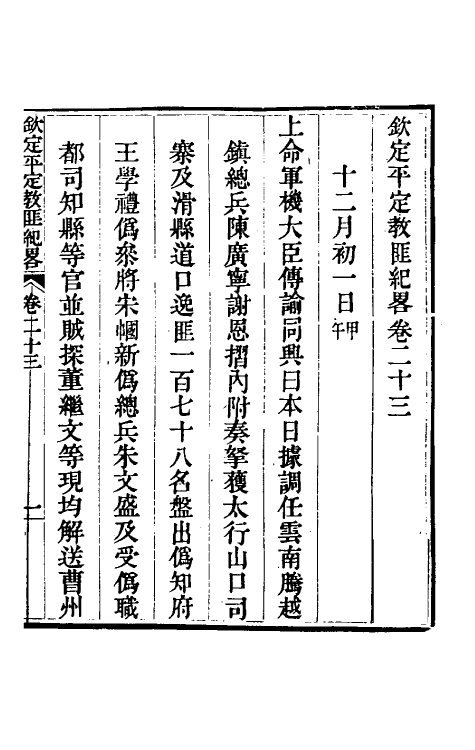 欽定平定教匪紀畧卷二十三
十二月初一日甲午
上命軍機大臣傳諭同興日本日據調任雲南騰越
鎮總兵陳廣寧謝恩摺內附奏拏獲太行山口司
寨及滑縣道口逸匪一百七十八名盤出僞知府
王學禮僞叅將宋幗新僞總兵朱文盛及受僞職
都司知縣等官並賊探董繼文等現均解送曹州
欽定平定教匪紀畧 卷二十三 一